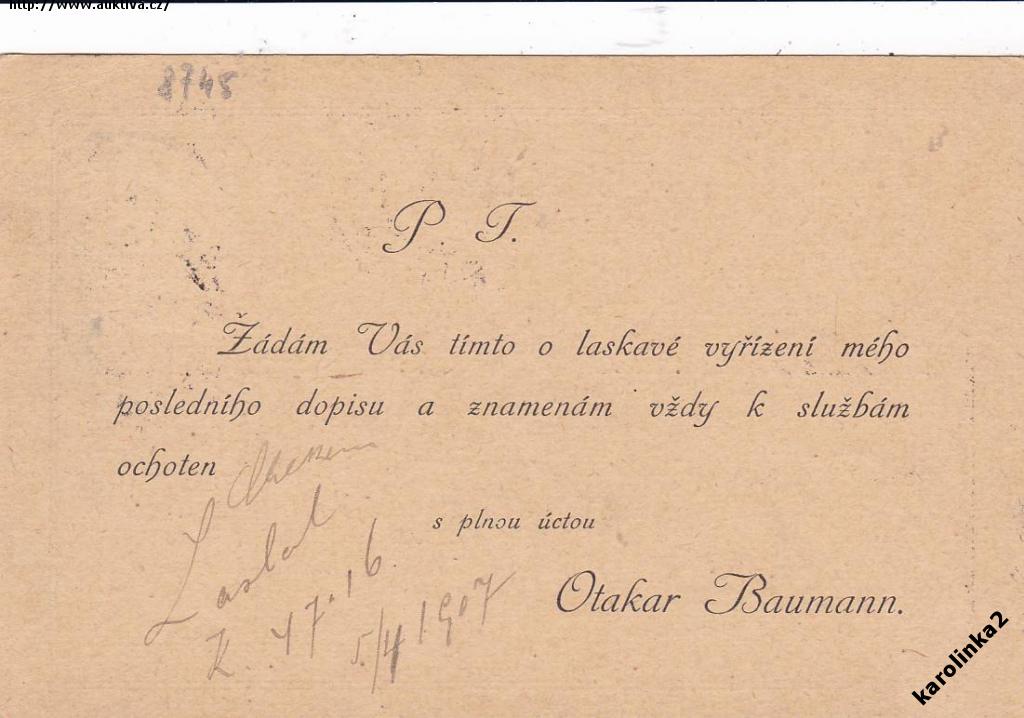 http://www.auktiva.cz/
8745
P. T.
Žádám Vás tímto o laskavé vyřízení mého
posledního dopisu a znamenám vždy k službám
ochoten
s plnou úctou
K. 47.16.
5/4 1907
Otakar Baumann.
karolinka2